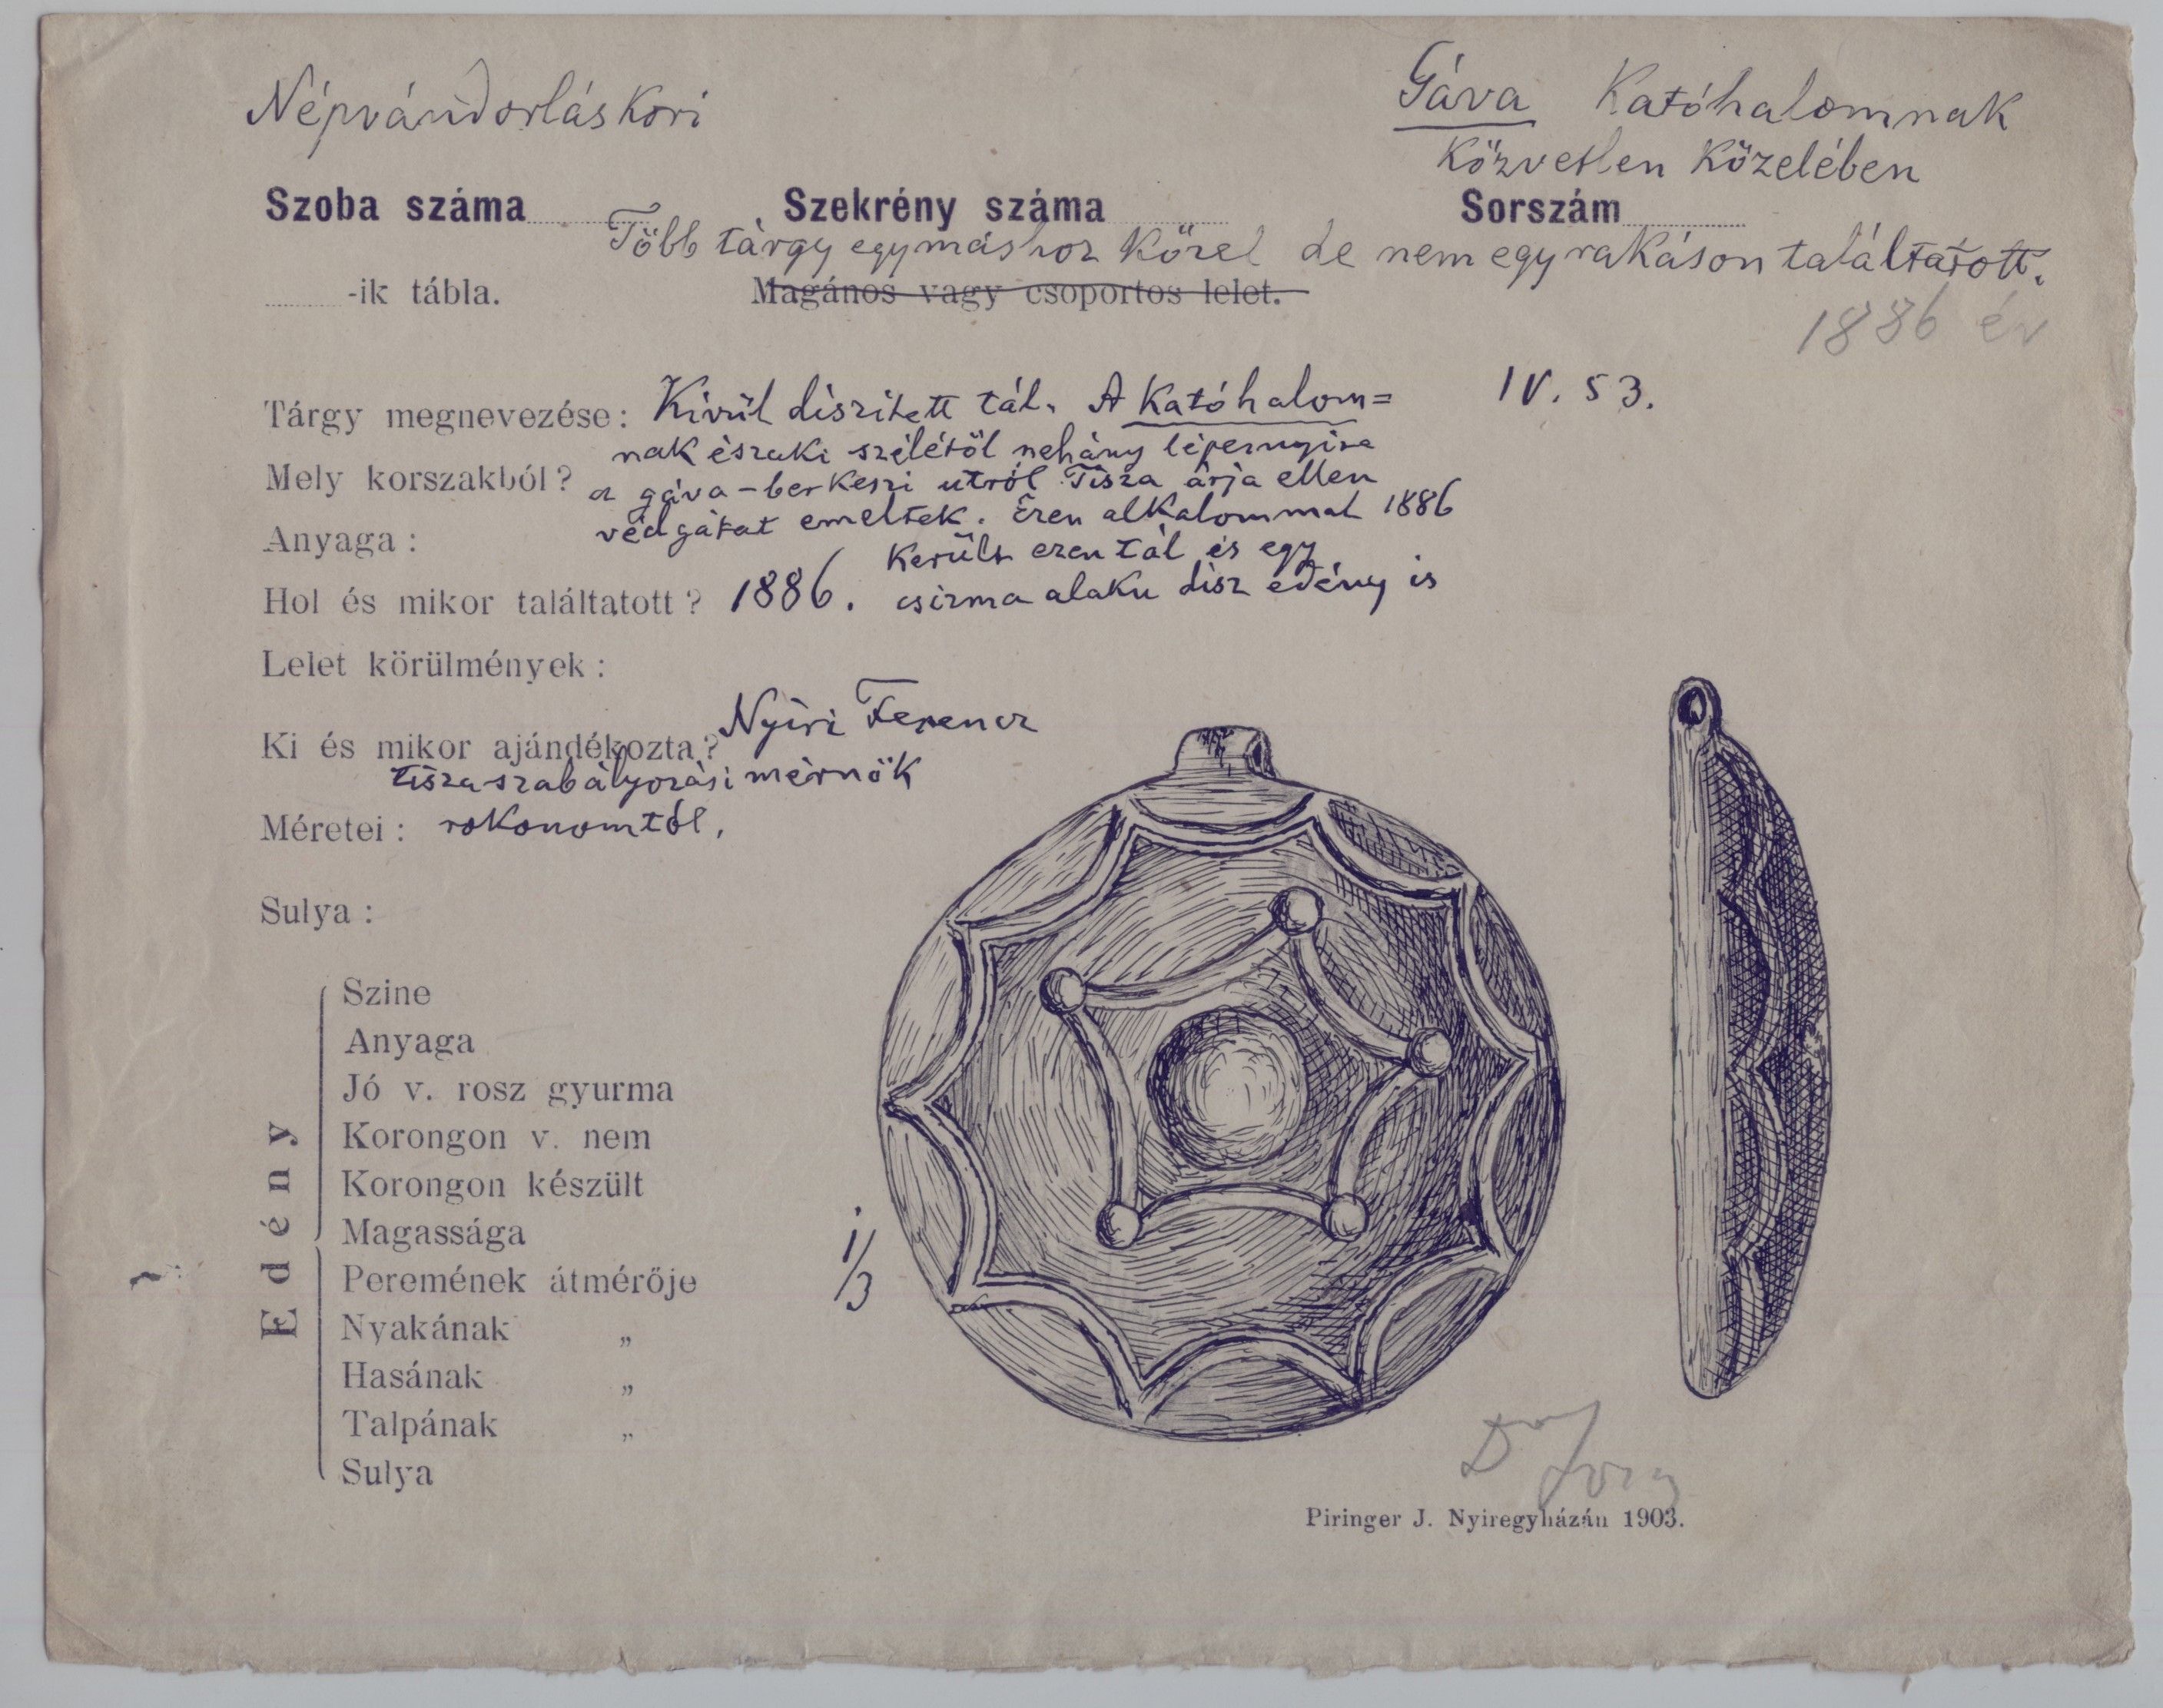 Népvándorláskori
Gáva Katóhalomnak
közvetlen közelében
Szoba száma Szekrény száma Sorszám
Több tárgy egymáshoz közel de nem egy rakáson találtatott.
-ik tábla. Magános vagy csoportos lelet.
1886 év
Tárgy megnevezése: Kivül diszitett tál. A Katóhalom= IV. 53.
nak északi szélétöl nehány lépésnyire
Mely korszakból? a gáva-berkeszi utról Tisza árja ellen
védgátat emeltek. Ezen alkalommal 1886
Anyaga:
került ezen tál és egy
Hol és mikor találtatott? 1886. csizma alaku disz edény is
Lelet körülmények:
Nyíri Ferencz
Ki és mikor ajándékozta?
tiszaszabályozási mérnök
Méretei: rokonomtól.
Sulya:
Edény
Szine
Anyaga
Jó v. rosz gyurma
Korongon v. nem
Korongon készült
Magassága
Peremének átmérője
Nyakának „
Hasának „
Talpának „
Sulya
1/3
Piringer J. Nyiregyházán 1903.